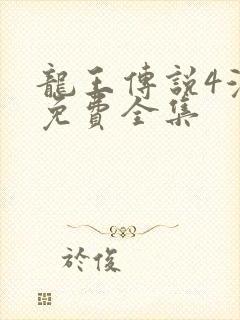 龍王傳説4
免費全集
於俊